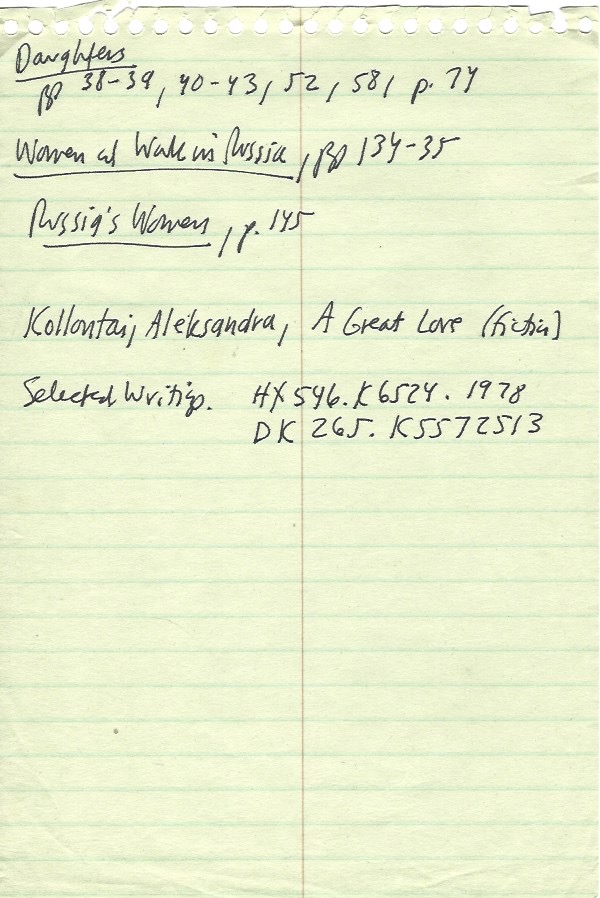 Daughters
pp 38-39, 40-43, 52, 58, p. 74
Women at Work in Russia, pp 134-35
Russia's Women, p. 145
Kollontai, Aleksandra, A Great Love (fiction)
Selected Writings. HX 546. K6524. 1978
DK 265. K5572513